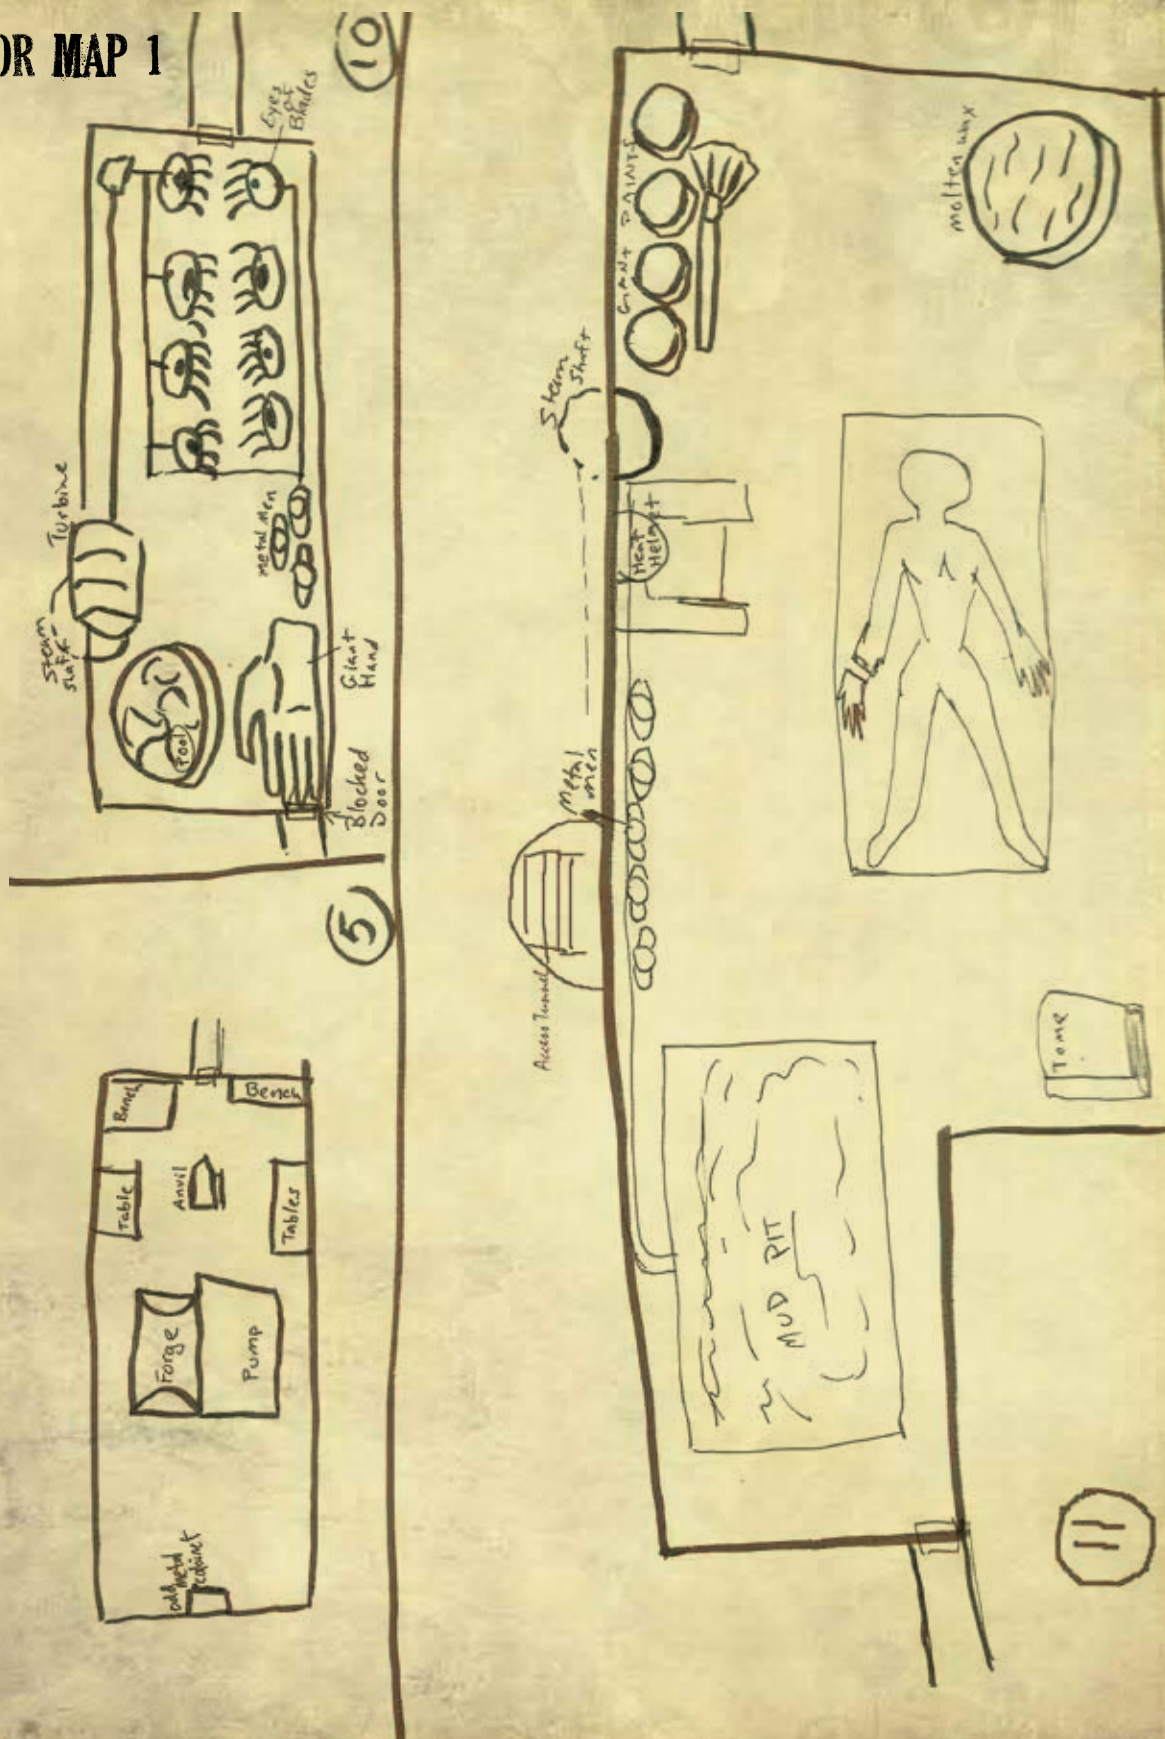 OR MAP 1
10
Eyes
of
Blades
Turbine
Steam
Shaft
Metal Men
Pool
Giant
Hand
Blocked
Door
5
Bench
Bench
Table
Anvil
Tables
Forge
Pump
odd metal
cabinet
GIANT PAINTS
molten wax
Steam
Shaft
Heat
Helmet
Metal
men
Access Tunnel
Tome
MUD PIT
11